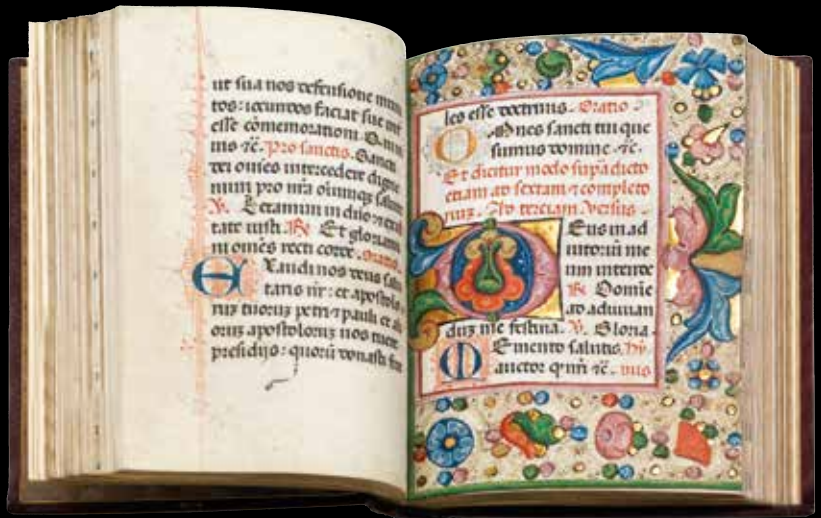 ut sua nos defensione muni
tos: iocundos faciat sue
esse cōmemorationi
ius ⁊c̄. Pro sanctis. Sancti
dei omēs intercedere digne
mini pro nr̄a omniuꝫ salute
V. Letamini in dn̄o ⁊ exul
tate iusti. R̄ Et gloriami
ni omēs recti corde. Oratio.
EXaudi nos deus salu
taris nr̄: et apostolo
ruꝫ tuoruꝫ petri ⁊ pauli et ali
oruꝫ apostoloruꝫ nos tuere
presidijs: quorū donasti
les esse doctrinis. Oratio
OMnes sancti tui que
sumus domine ⁊c̄.
Et dicitur modo supͣdicto
etiam ad sextam ⁊ completo
riuꝫ. Ad terciam. Versus
DEus in ad
iutoriū me
um intende
R̄ Domīe
ad adiuuan
duꝫ me festina. V. Gloria.
MEmento salutis. hy
auctor ꝙ nr̄i ⁊c̄.